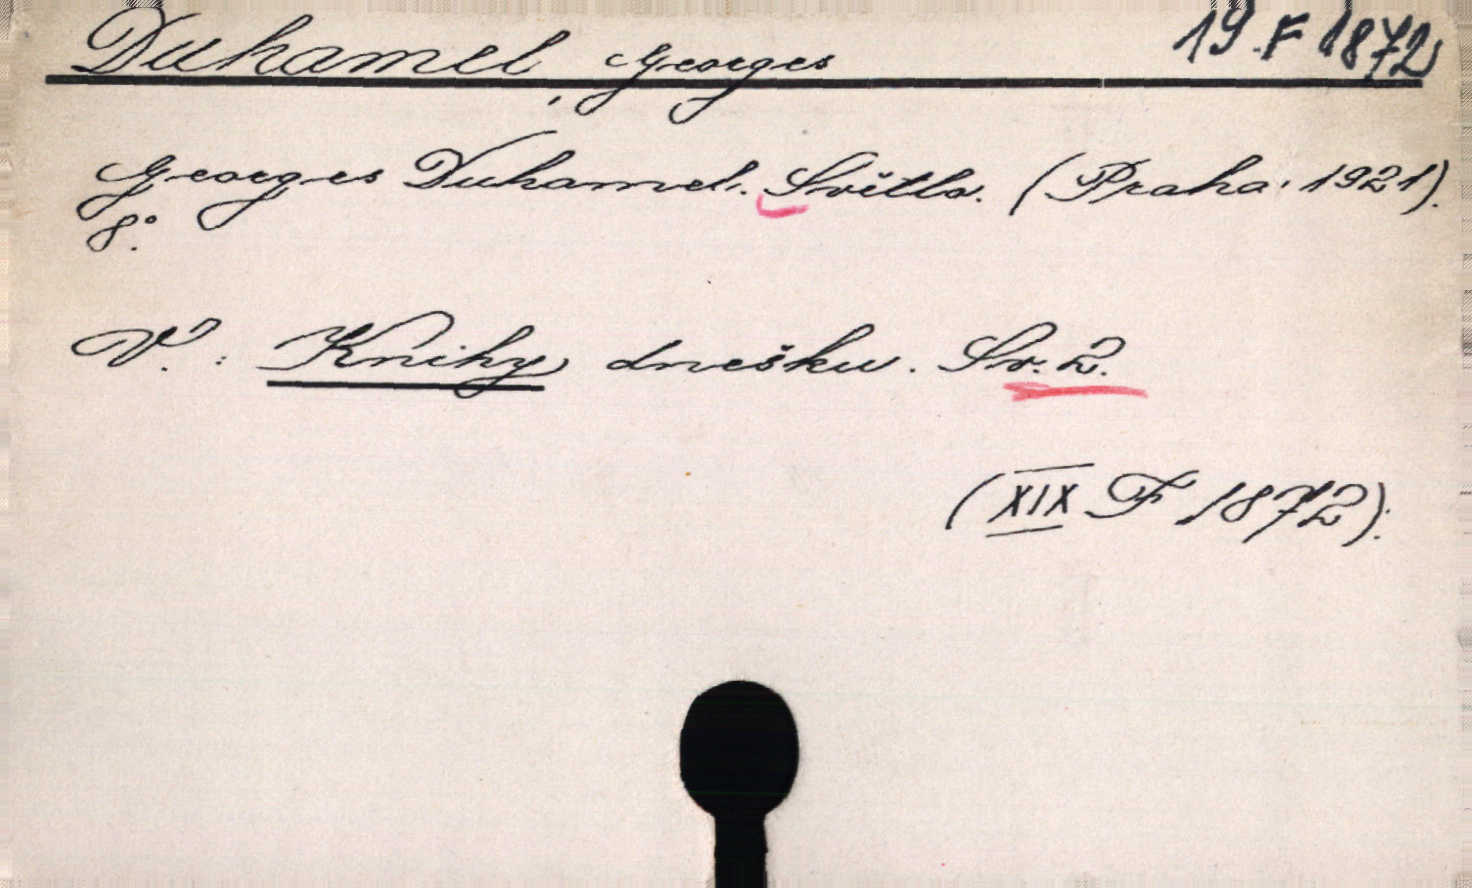 Duhamel, Georges 19 F 1872
Georges Duhamel. Světlo. (Praha, 1921).
8°.
V: Knihy dnešku. Sv. 2.
(XIX F 1872).